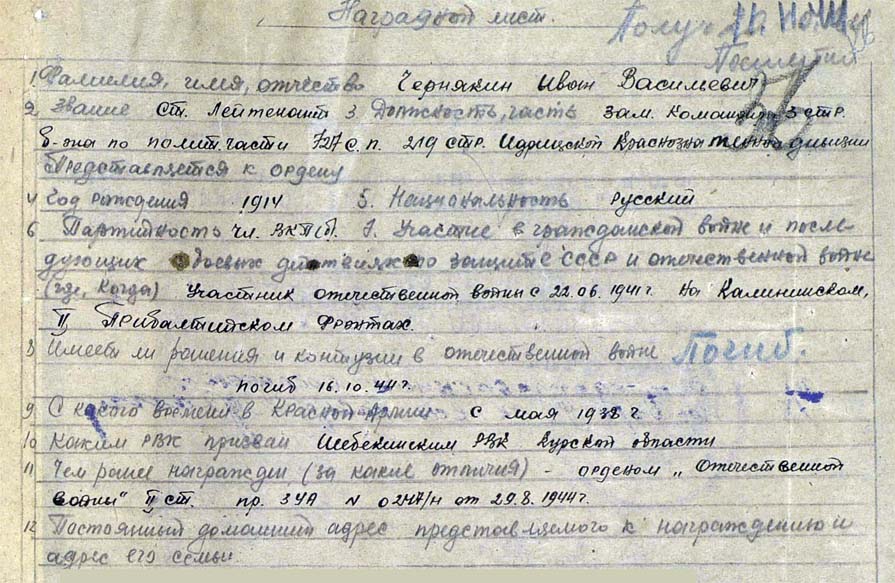 Наградной лист.
Получ 20.
1. Фамилия, имя, отчество Чернякин Иван Васильевич
2. Звание ст. Лейтенант 3. Должность, часть зам. командира 3 стр.
б-она по полит. части 727 с. п. 219 стр. Идрицкой Краснознаменной дивизии
Представляется к ордену
4 Год рождения 1914 5. Национальность русский
6 Партийность чл. ВКП(б). 7. Участие в гражданской войне и после-
дующих боевых действиях по защите СССР и отечественной войне
(где, когда) Участник отечественной войны с 22.06.1941 г. на Калининском,
II Прибалтийском фронтах.
8 Имеет ли ранения и контузии в отечественной войне Погиб.
погиб 16.10.44 г.
9 С какого времени в Красной Армии с мая 1938 г
10 Каким РВК призван Шебекинским РВК Курской области
11 Чем ранее награжден (за какие отличия) - орденом „Отечественной
войны" II ст. пр. 3УА N 0247/н от 29.8.1944 г.
12 Постоянный домашний адрес представляемого к награждению и
адрес его семьи